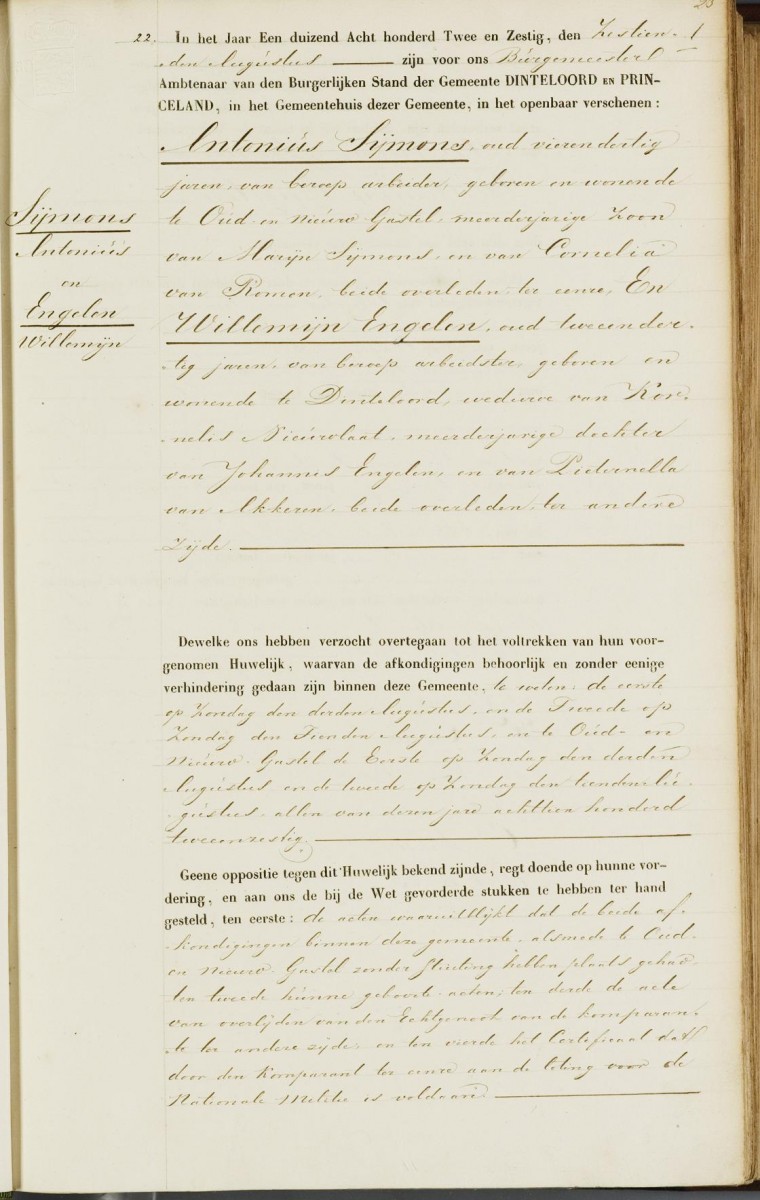 23
22. In het Jaar Een duizend Acht honderd Twee en Zestig, den Zestien-
den Augustus zijn voor ons Burgemeester
Ambtenaar van den Burgerlijken Stand der Gemeente DINTELOORD EN PRIN-
CELAND, in het Gemeentehuis dezer Gemeente, in het openbaar verschenen:
Antoniús Sijmons, oud vierendertig
jaren, van beroep arbeider, geboren en wonende
te Oud en Nieúw Gastel, meerderjarige Zoon
van Marijn Sijmons, en van Cornelia
van Romen, beide overleden, ter eenre, En
Willemijn Engelen, oud tweeënder-
tig jaren, van beroep arbeidster, geboren en
wonende te Dinteloord, weduwe van Kor-
nelis Nieúwlaat, meerderjarige dochter
van Johannis Engelen, en van Pieternella
van Akkeren, beide overleden, ter andere
Zijde.
Sijmons
Antoniús
en
Engelen
Willemijn
Dewelke ons hebben verzocht overtegaan tot het voltrekken van hun voor-
genomen Huwelijk, waarvan de afkondigingen behoorlijk en zonder eenige
verhindering gedaan zijn binnen deze Gemeente, te weten: de eerste
op Zondag den derden Augústus, en de Tweede op
Zondag den Tienden Augústus, en te Oúd- en
Nieúw-Gastel de Eerste op Zondag den derden
Augústus en de tweede op Zondag den tienden Au-
gústus, allen van dezen jare achttien honderd
tweeenzestig.
Geene oppositie tegen dit Huwelijk bekend zijnde, regt doende op hunne vor-
dering, en aan ons de bij de Wet gevorderde stukken te hebben ter hand
gesteld, ten eerste: de acten waaruit blijkt dat de beide af-
kondigingen binnen deze gemeente, alsmede te Oud-
en Nieúw-Gastel zonder Stúiting hebben plaats gehad
ten tweede húnne geboorte-acten; ten derde de acte
van overlijden van den Echtgenoot van de komparan-
te ter andere zijde, en ten vierde het Certificaat dat
door den Komparant ter eenre aan de loting voor de
Nationale Melitie is voldaan.